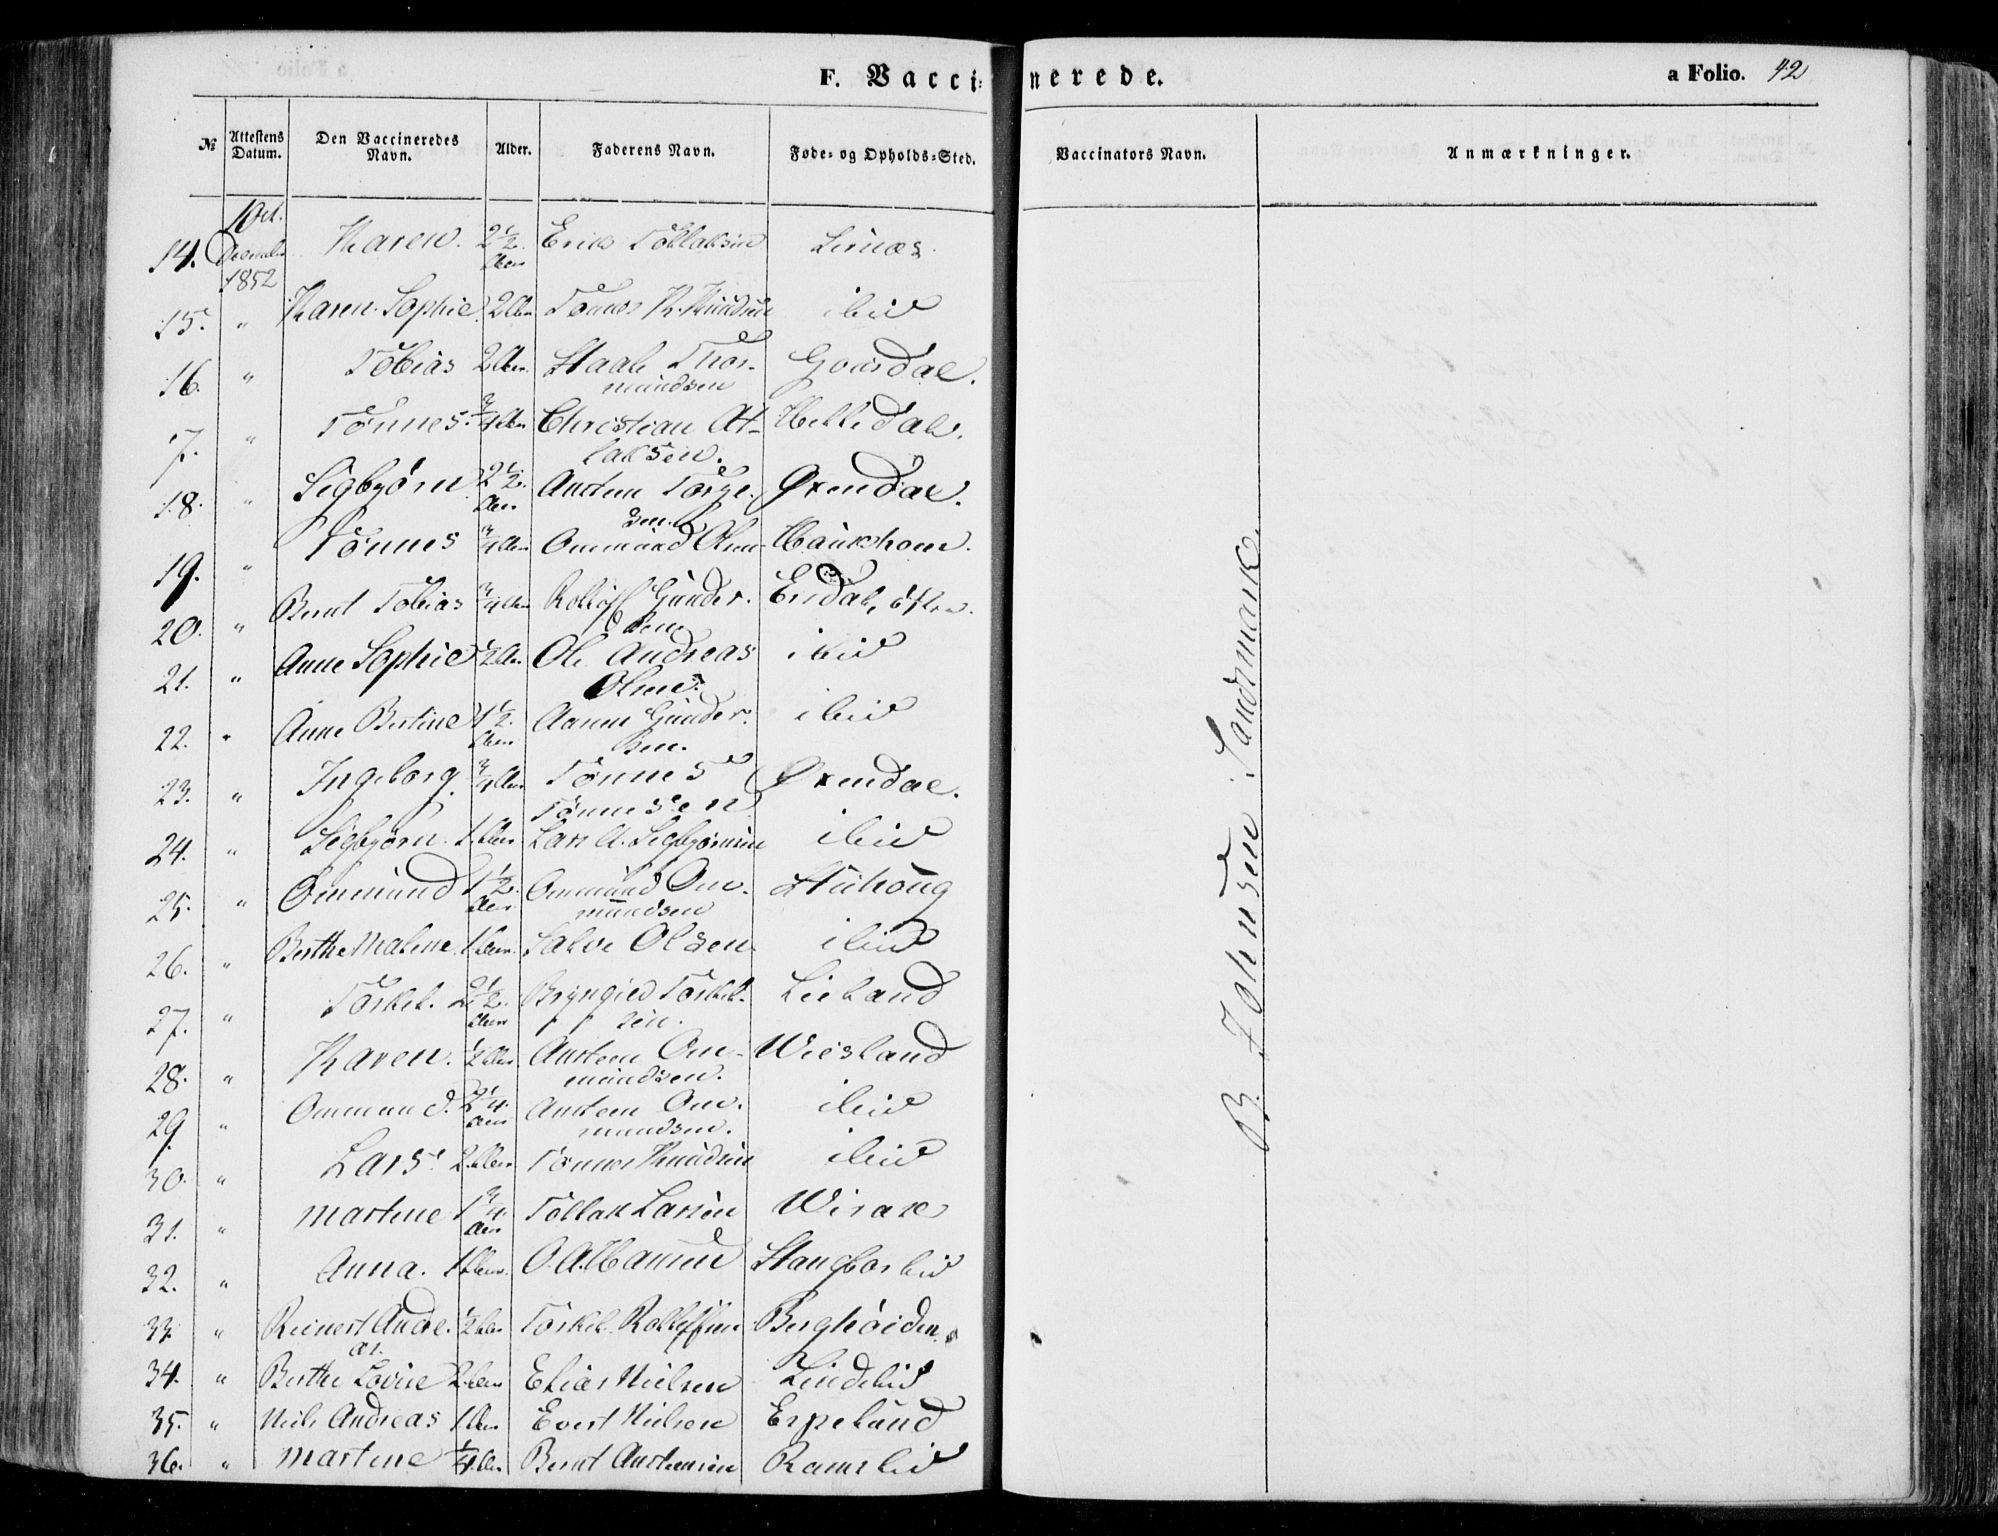 F. Vaccinerede. a Folio. 42
№ Attestens Datum. Den Vaccineredes Navn. Alder. Faderens Navn. Føde- og Opholds-Sted. Vaccinators Navn. Anmærkninger.
14. 10de December 1852 Karen. 2 1/2 Aar Erik Tollaksen
15. " Karen Sophie. 2 Aar Tönnes K. Knudsen ibid
16. " Tobias 2 Aar. Staale Thormundsen
7. " Tönnes. 3/4 Aar Christian Atlaksen. Helledal.
18. " Sigbjörn 2 1/2 Aar Austen Törgesen. Øxendal.
19. " Tönnes 3/4 Aar Ommund Olsen Haukhom.
20. " Bernt Tobias 3/4 Aar Rollöf Gundersen Eisdal,
21. " Anne Sophie 1/2 Aar Ole Andreas Olsen. ibid
22. " Anne Bertine 1 1/2 Aar Aanen Gundersen. ibid
23. " Ingeborg. 3/4 Aar Tönnes Tönnesen Øxendal.
24. " Sigbjörn. 1 Aar. Lars A. Sigbjörnsen ibid
25. " Ommund 1 1/2 Aar Ommund Ommundsen Stuhoug
26. " Berthe Malene. 1 Aar. Salve Olsen ibid
27. " Törkel. 2 1/2 Aar Bryngied Törkelsen. Lieland
28. " Karen. 1/2 Aar. Austeen Ommundsen. Wiesland
29 " Ommund. 2 1/4 Aar Austeen Ommundsen. ibid
30. " Lars. 2 Aar Tönnes Knudsen ibid
31. " Martine 1 3/4 Aar Tollak Larsen Wirak
32. " Anna. 1 Aar. O. A. Hansen Stangborlid
33. " Reinert Andreas. 1/2 Aar Törkel Rolleffsen Berghöiden.
34. " Berthe Lovise 2 Aar Elias Nielsen Lindelid
35. " Niels Andreas 1 Aar Evert Nielsen Erpelund
36. " Martine 1/4 Aar Bernt Austensen Ramslid
B. Johnsen Landsmark